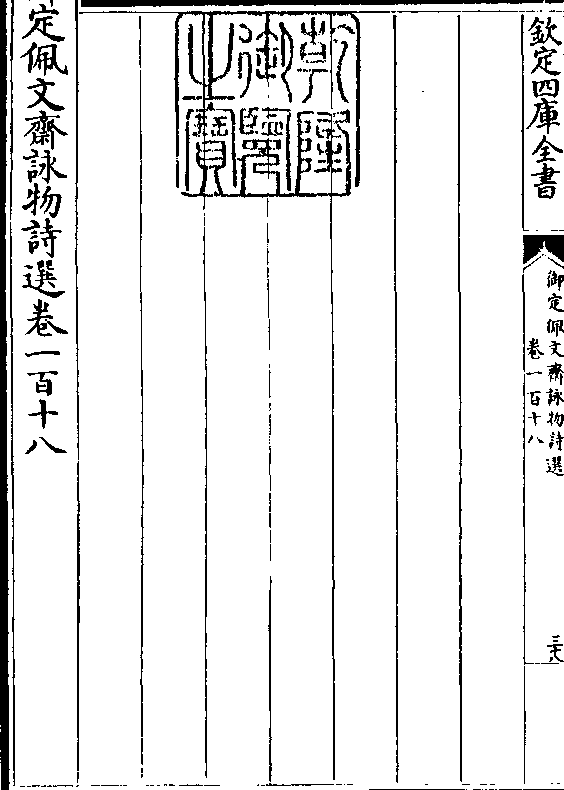 欽定四庫全書
御定佩文齋詠物詩選
卷一百十八
三六
乾隆
御覽
之寶
定佩文齋詠物詩選卷一百十八